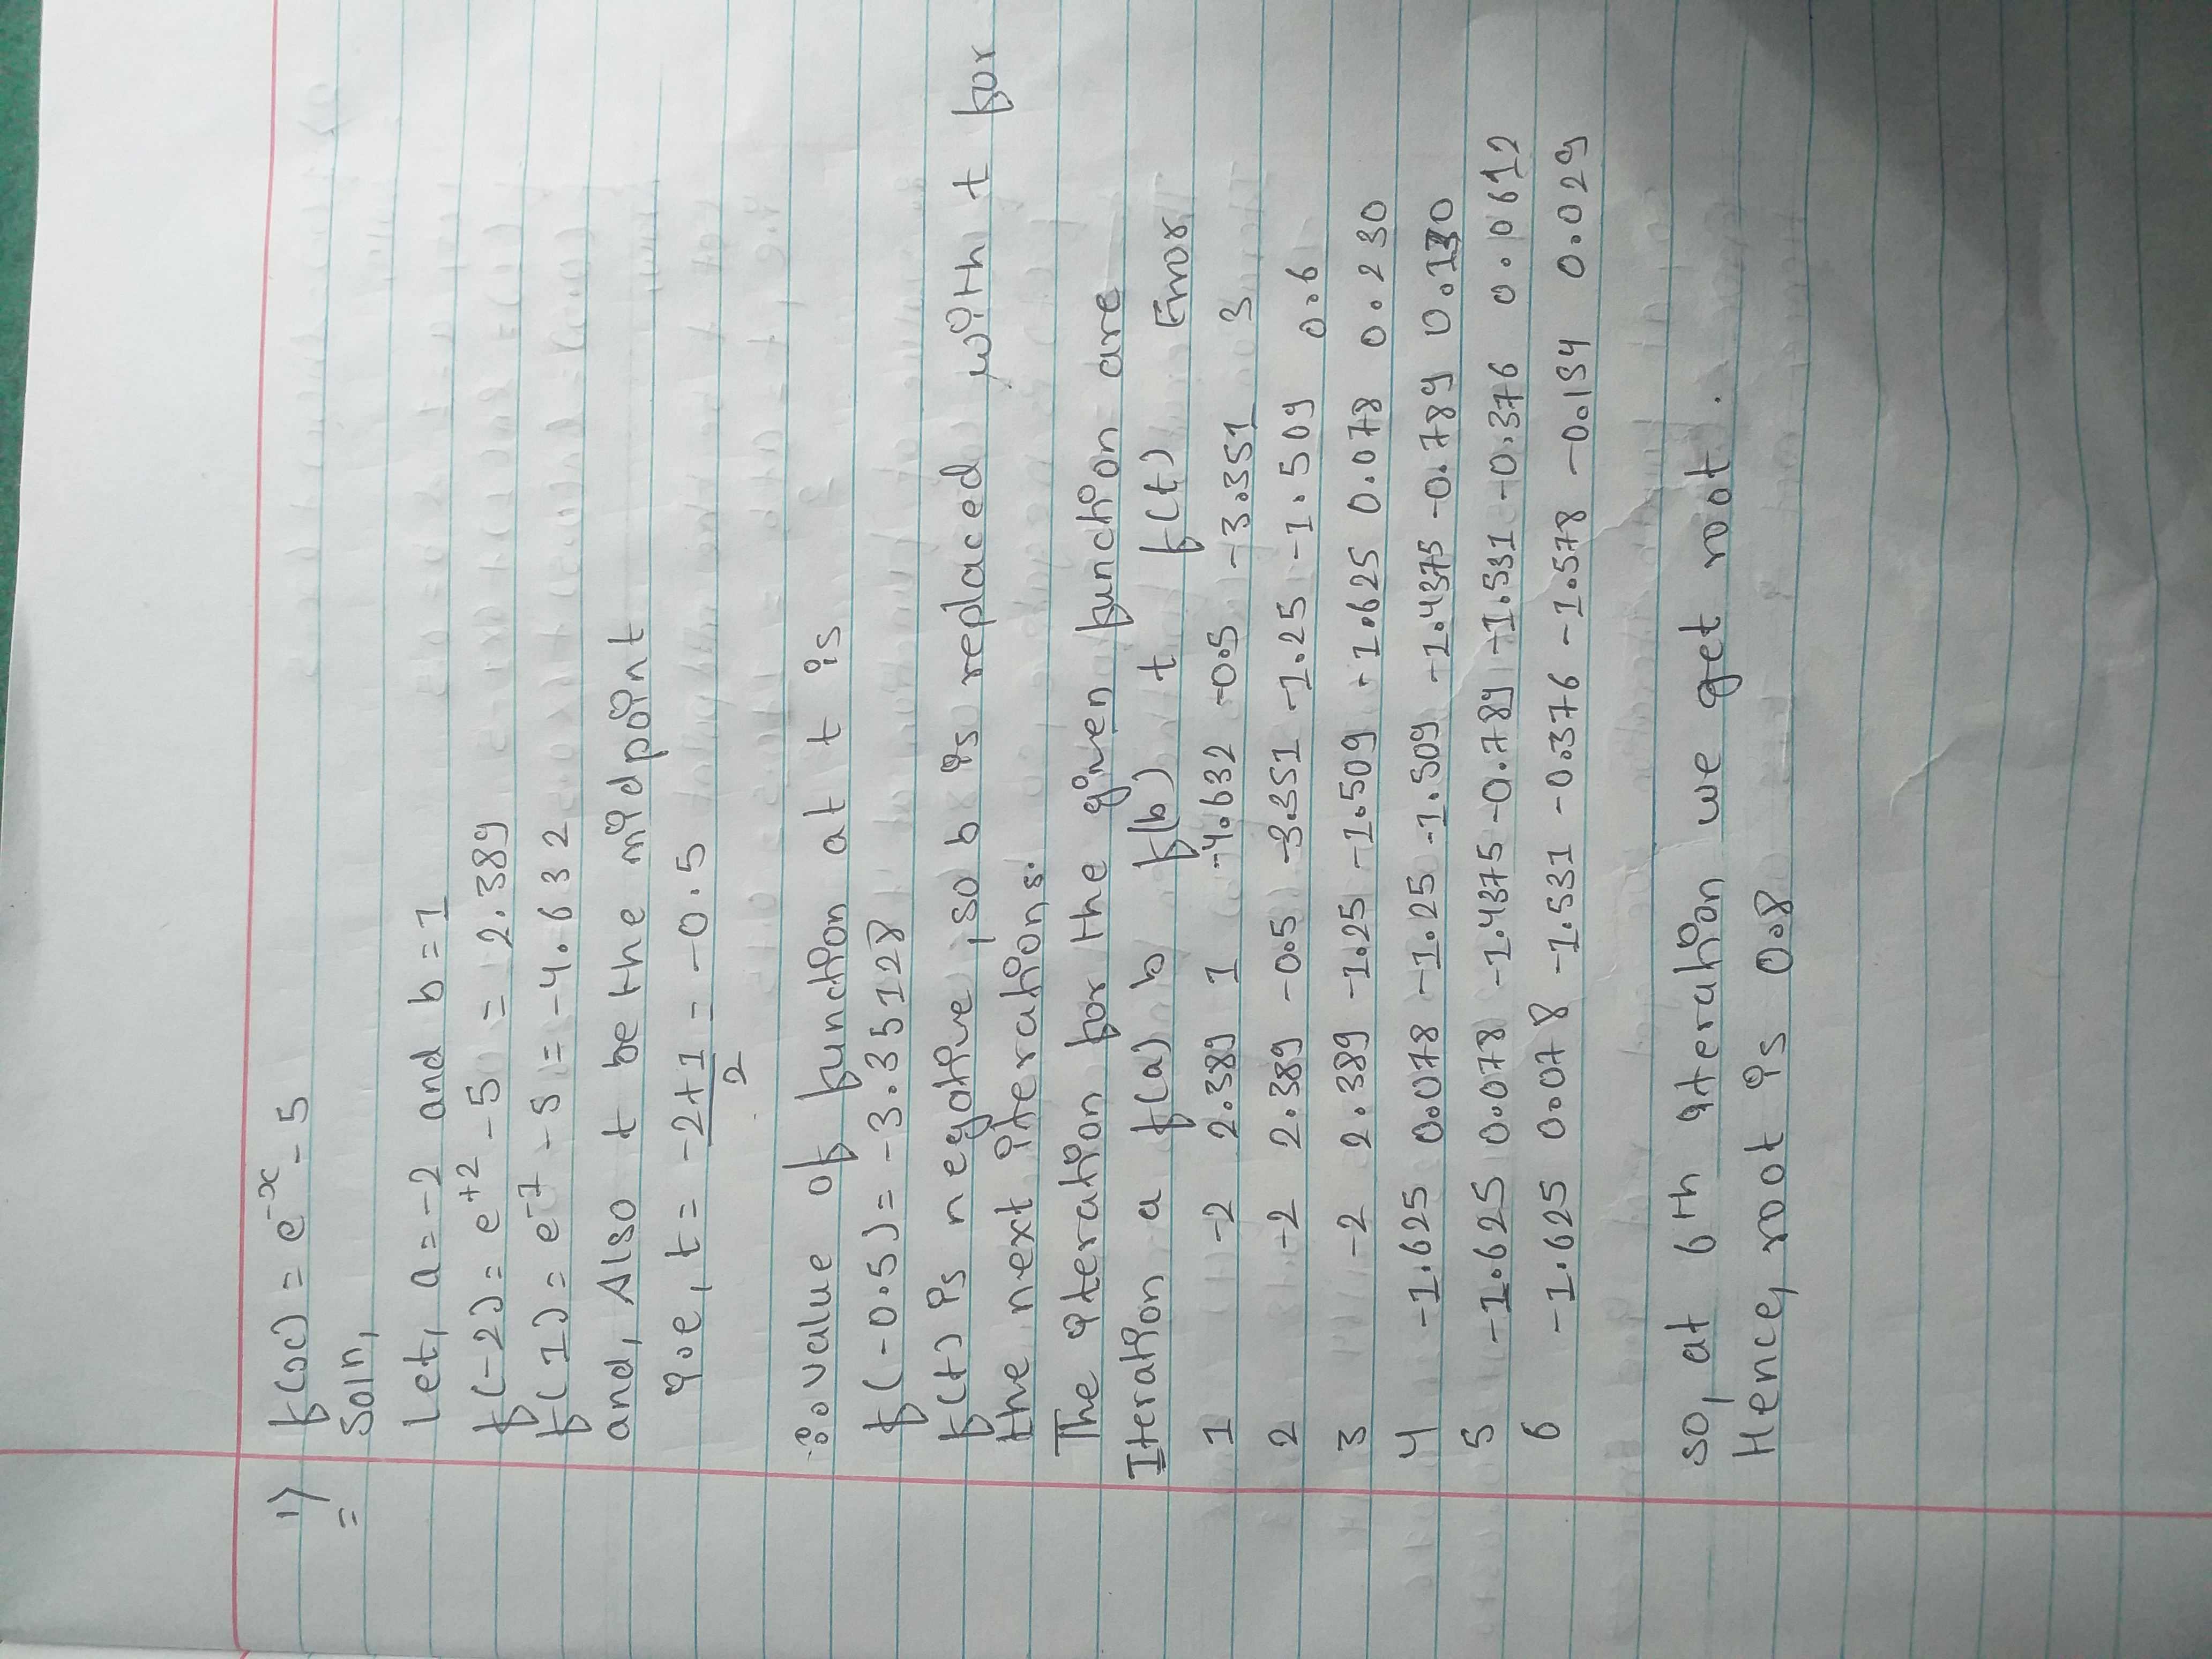 1) f(x) = e^-x - 5
= Soln,
Let, a = -2 and b = 1
f(-2) = e^+2 - 5 = 2.389
f(1) = e^-1 - 5 = -4.632
and, Also t be the midpoint
i.e, t = -2+1 = -0.5
2
∴ value of function at t is
f(-0.5) = -3.35128
f(t) is negative, so b is replaced with t for
the next iterations.
The iteration for the given function are
Iteration a f(a) b f(b) t f(t) Error
1 -2 2.389 1 -4.632 -0.5 -3.351 3
2 -2 2.389 -0.5 -3.351 -1.25 -1.509 0.6
3 -2 2.389 -1.25 -1.509 -1.625 0.078 0.230
4 -1.625 0.078 -1.25 -1.509 -1.4375 -0.789 0.130
5 -1.625 0.078 -1.4375 -0.789 -1.531 -0.376 0.0612
6 -1.625 0.078 -1.531 -0.376 -1.578 -0.154 0.029
so, at 6th iteration we get root.
Hence, root is 0.8